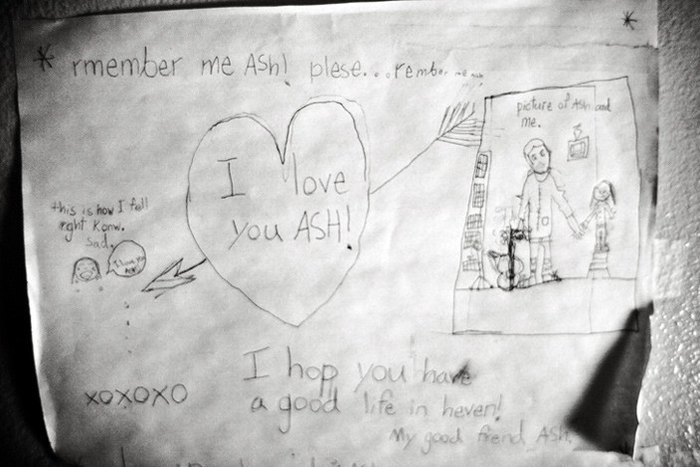 * rmember me ASh! plese...rember me ash *
picture of Ash and
me.
I love
you ASH!
this is how I fell
right Konw.
Sad.
I love you
ASh!
xoxoxo
I hop you have
a good life in heven!
My good friend ASh.